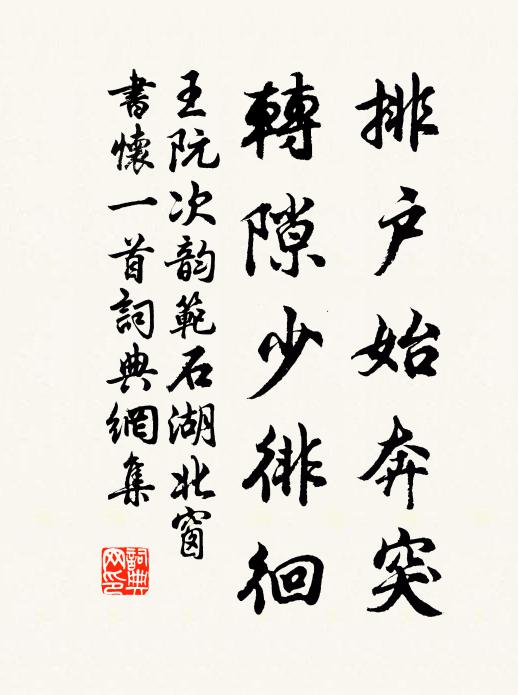 排户始奔突
轉隙少徘徊
王阮次韵範石湖北窗
書懷一首詞典網集
詞典網印